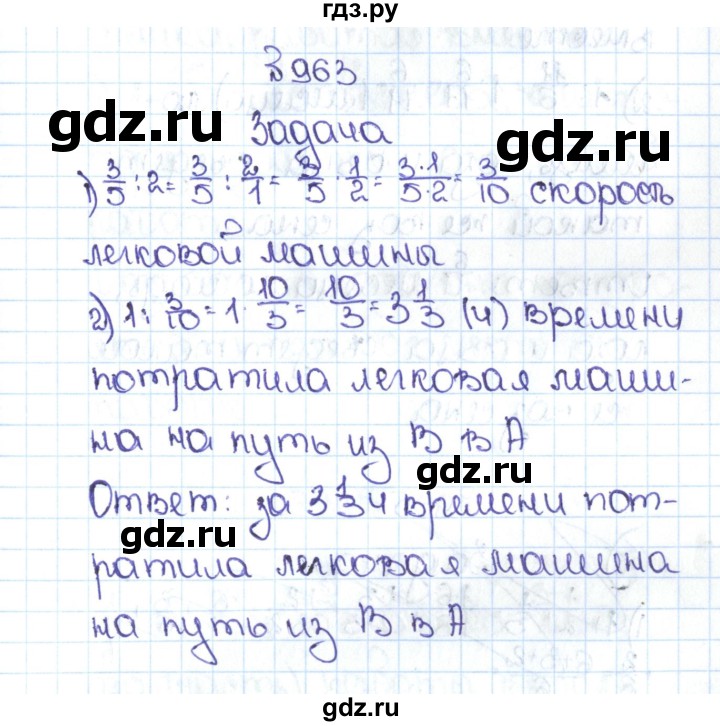 гдз.ру
№ 963
gdz.ru gdz.ru
Задача
1) 3/5 : 2 = 3/5 : 2/1 = 3/5 · 1/2 = 3·1/5·2 = 3/10 скорость
gdz.ru gdz.ru
легковой машины
2) 1 : 3/10 = 1 · 10/3 = 10/3 = 3 1/3 (ч) времени
потратила легковая маши-
на на путь из В в А
gdz.ru
Ответ: за 3 1/3 ч времени пот-
gdz.ru
ратила легковая машина
на путь из В в А
gdz.ru